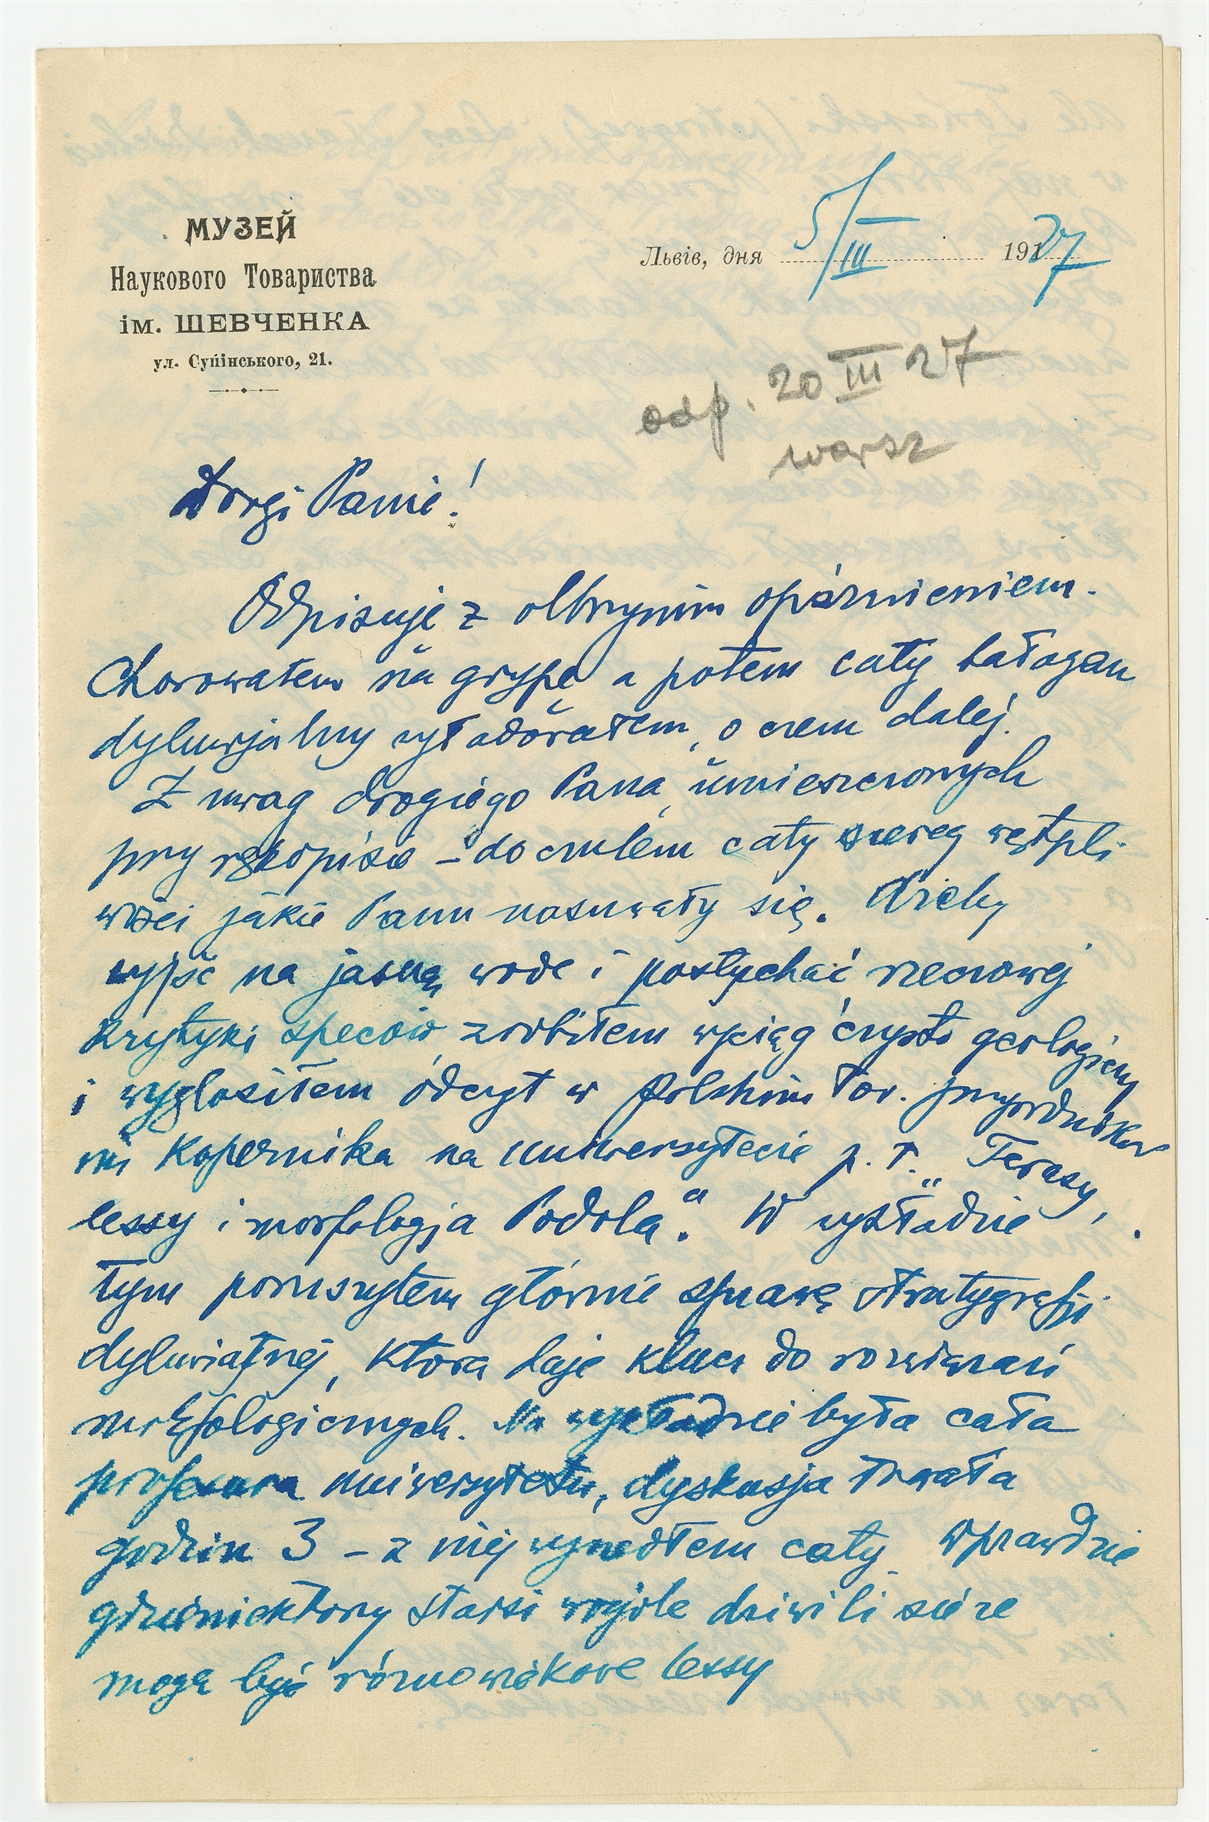 МУЗЕЙ
Наукового Товариства
ім. ШЕВЧЕНКА
ул. Супінського, 21.
Львів, дня 5/III 1927
odp. 20 III 27
warsz
Drogi Panie!
Odpisuję z olbrzymim opóźnieniem.
Chorowałem na grypę a potem cały bałagan
dyluwjalny wyładowałem, o czem dalej.
Z uwag drogiego Pana, umieszczonych
przy rękopisie – doczułem cały szereg wątpli
wości jakie Panu nasuwały się. Ażeby
wyjść na jasną wodę i posłychać rzeczowej
krytyki speców zrobiłem wyciąg czysto geologiczny
i wygłosiłem odczyt w Polskim Tow. przyrodników
im Kopernika na uniwersytecie p. t. „Terasy,
lessy i morfologja Podola." W wykładzie
tym poruszyłem głównie sprawę stratygrafji
dyluwjalnej, która daje klucz do rozwiązań
morfologicznych. Na wykładzie była cała
profesura uniwersytetu, dyskusja trwała
godzin 3 – z niej wyszedłem cały. Wprawdzie
gdzieniektórzy starsi dziwili się że
mogą być różnowiekowe lessy